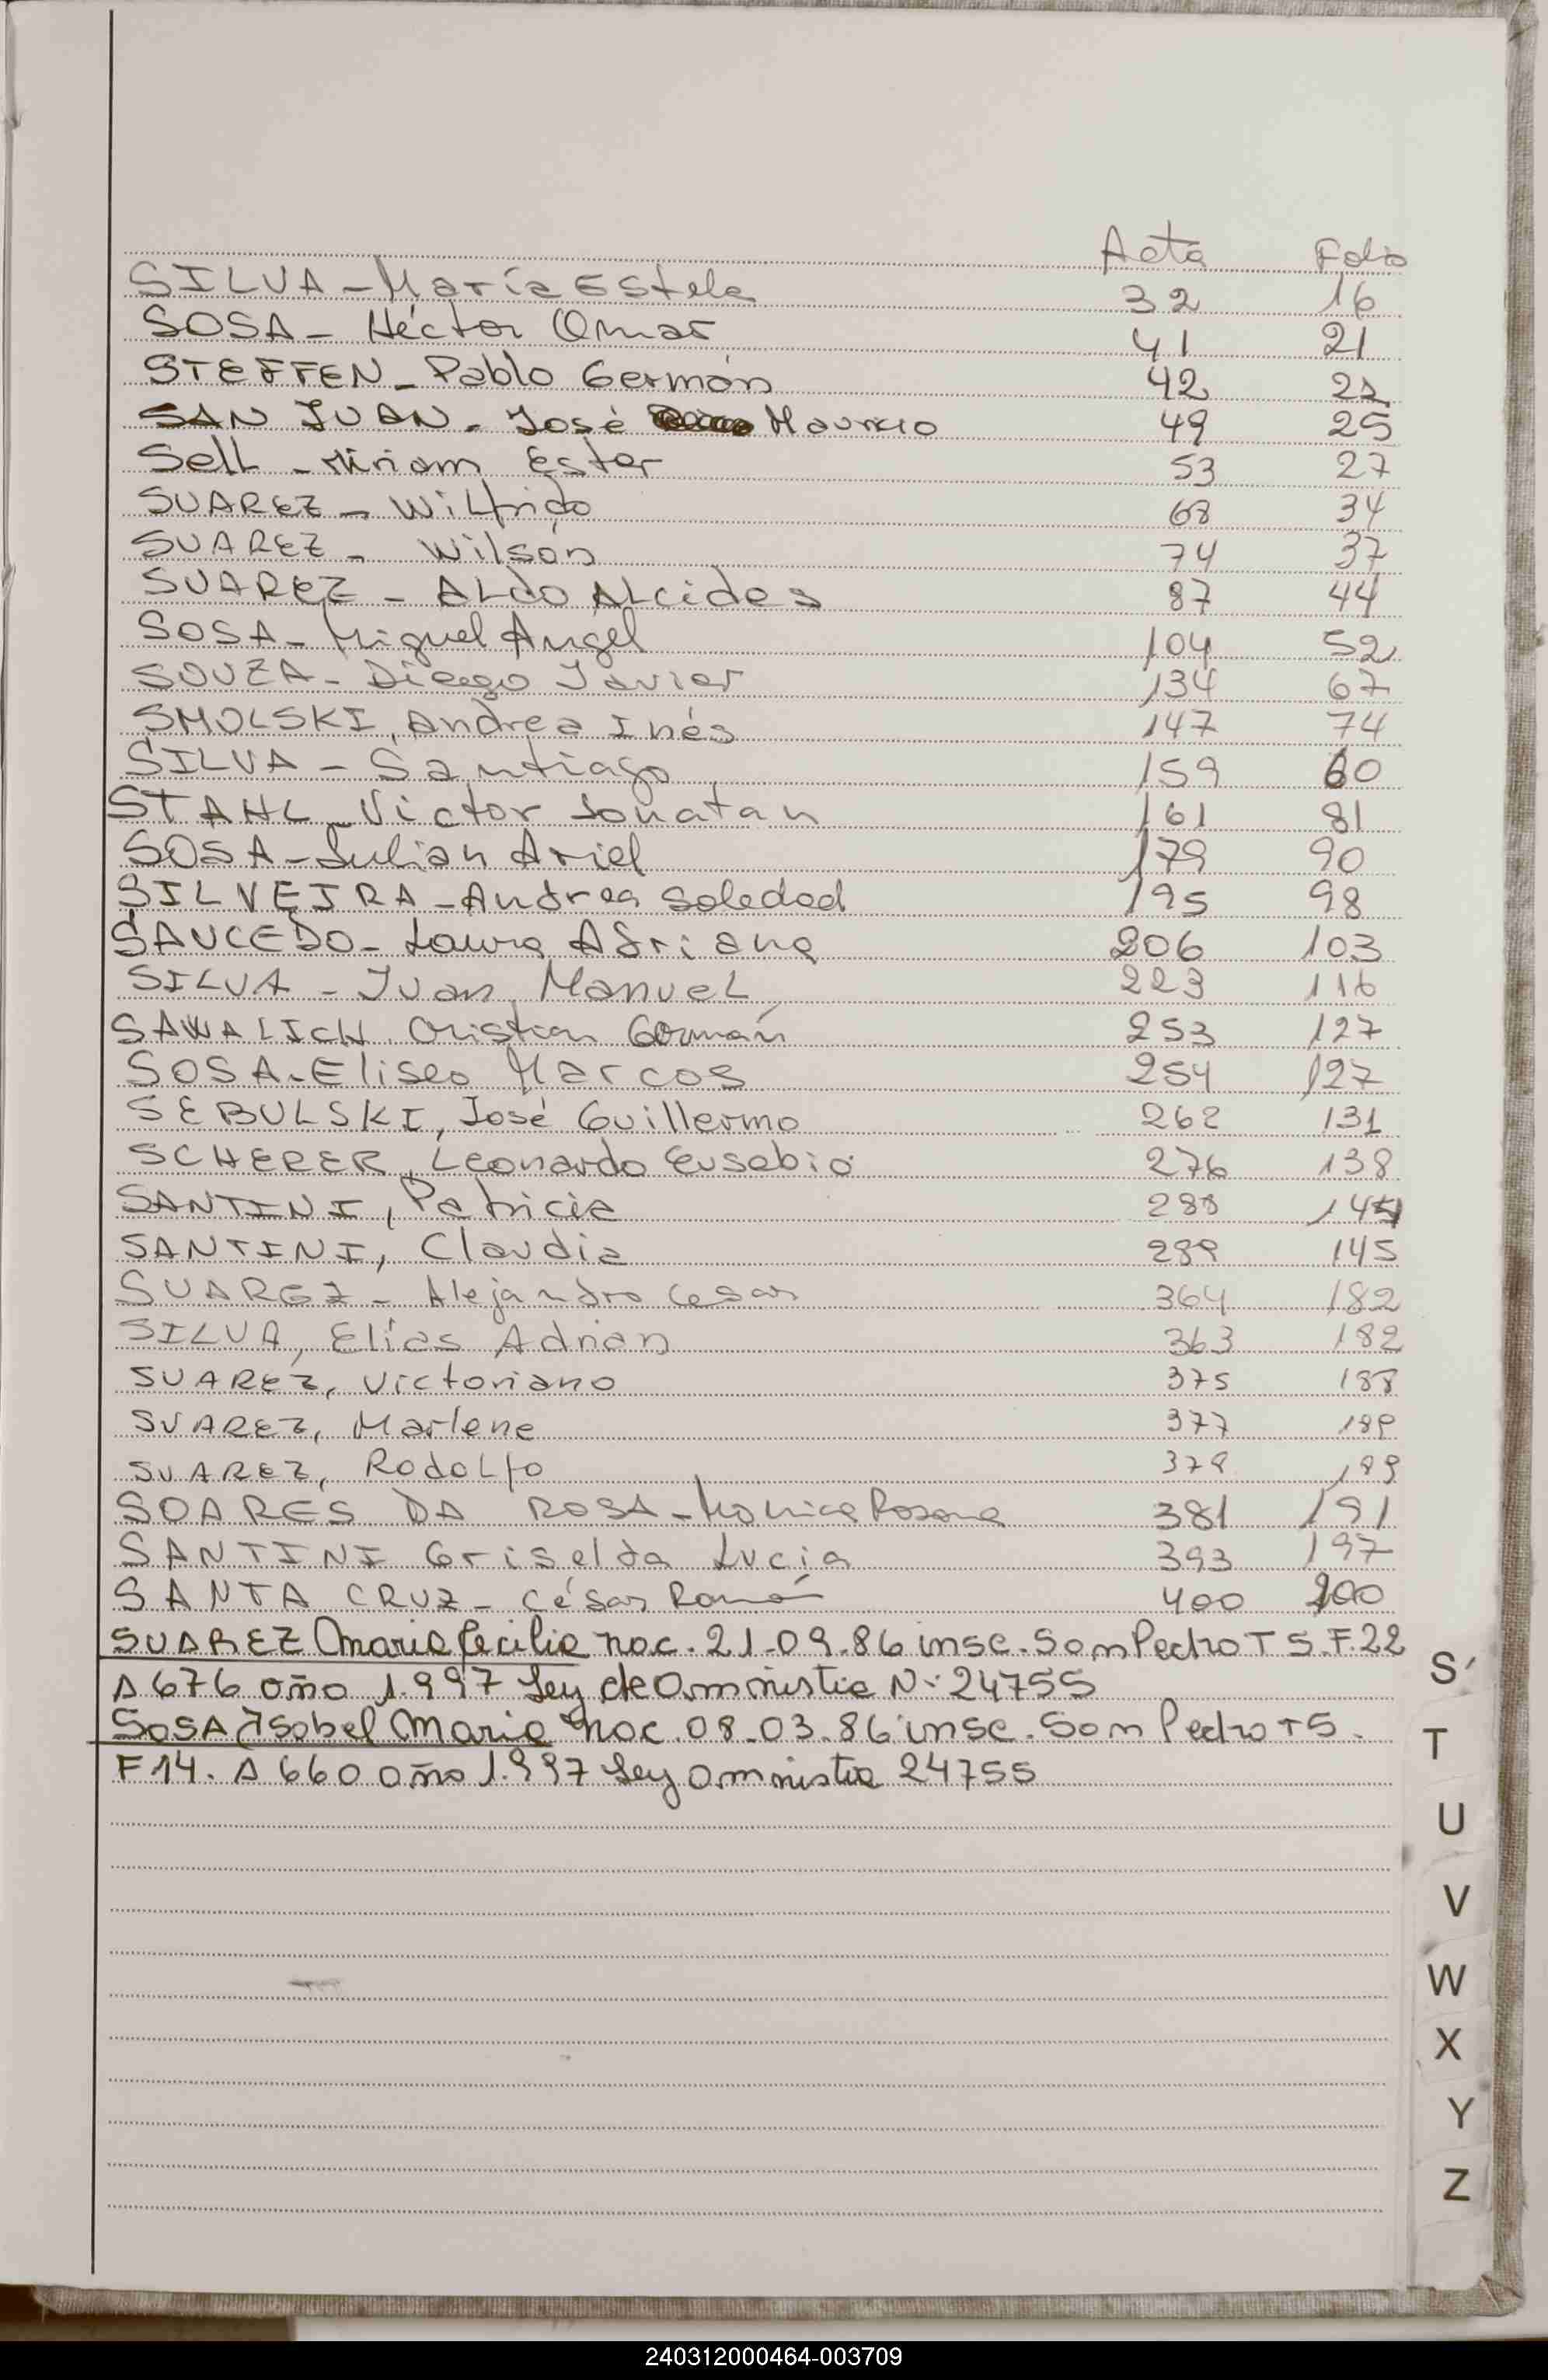 Acta Folio
SILVA - María Estela 32 16
SOSA - Héctor Omar 41 21
STEFFEN - Pablo Germán 42 21
SAN JUAN - José Mauricio 49 25
Sell - Miriam Ester 53 27
SUAREZ - Wilfrido 68 34
SUAREZ - Wilson 74 37
SUAREZ - ALdO ALcides 87 44
SOSA - Miguel Angel 104 52
SOUZA - Diego Javier 134 67
SMOLSKI, Andrea Inés 147 74
SILVA - Santiago 159 60
STAHL - Victor Jonatan 161 81
SOSA - Julian Ariel 179 90
SILVEIRA - Andrea Soledad 195 98
SAUCEDO - Laura Adriana 206 103
SILVA - Juan Manuel 223 116
SAWALICH, Cristian Germán 253 127
SOSA - Eliseo Marcos 254 127
SEBULSKI, José Guillermo 262 131
SCHERER, Leonardo Eusebio 276 138
SANTINI, Patricia 288 144
SANTINI, Claudia 289 145
SUAREZ - Alejandro Cesar 364 182
SILVA, Elías Adrian 363 182
SUAREZ, Victoriano 375 188
SUAREZ, Marlene 377 189
SUAREZ, Rodolfo 378 189
SOARES DA ROSA - Monica Rosana 381 191
SANTINI Griselda Lucia 393 197
SANTA CRUZ - César Ramón 400 200
SUAREZ Maria Cecilia nac. 21-09-86 insc. San Pedro T 5. F. 22
A 676 año 1.997 Ley de Aministia N: 24755
SOSA, Isabel Maria nac. 08-03-86 insc. San Pedro T5.
F 14. A 660 año 1.997 Ley Aministia 24755
S
T
U
V
W
X
Y
Z
240312000464-003709